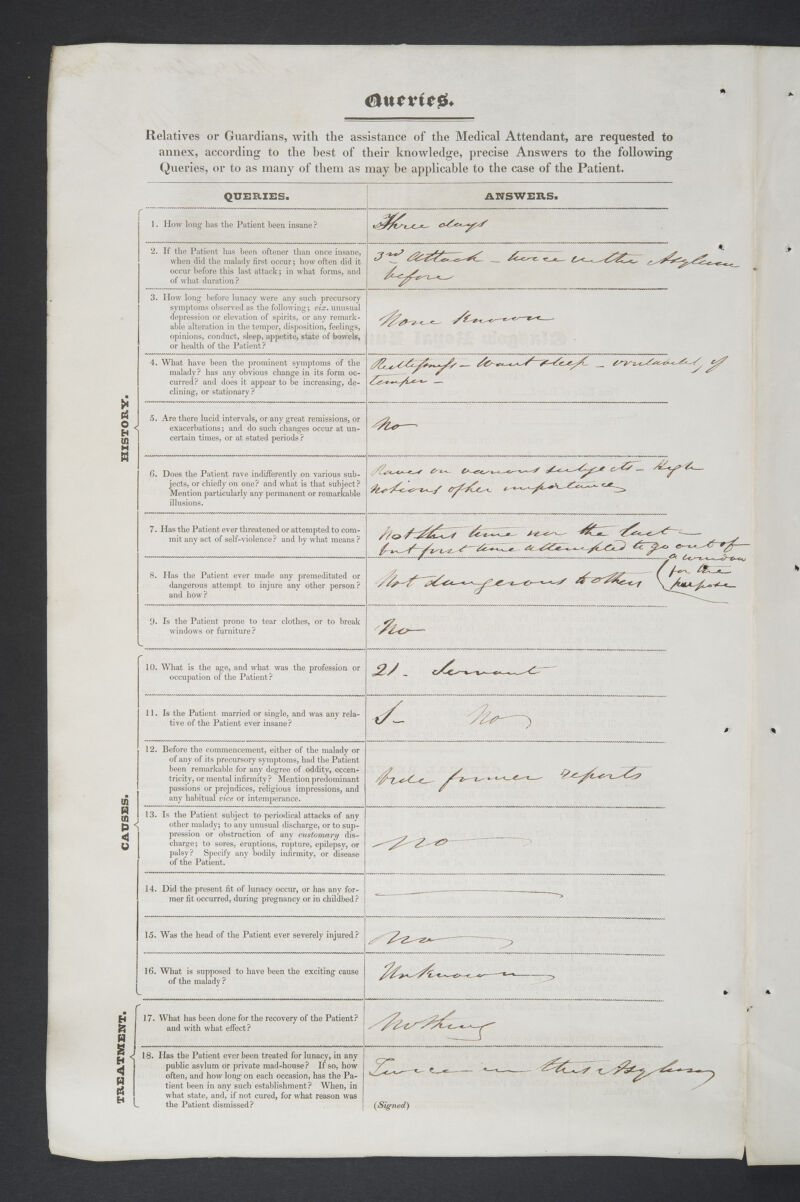 Queries.
Relatives or Guardians, with the assistance of the Medical Attendant, are requested to
annex, according to the best of their knowledge, precise Answers to the following
Queries, or to as many of them as may be applicable to the case of the Patient.
QUERIES.
ANSWERS.
HISTORY.
1. How long has the Patient been insane?
Three days
2. If the Patient has been oftener than once insane,
when did the malady first occur; how often did it
occur before this last attack; in what forms, and
of what duration?
3rd Attack – twice in the Asylum
before
3. How long before lunacy were any such precursory
symptoms observed as the following; viz. unusual
depression or elevation of spirits, or any remark-
able alteration in the temper, disposition, feelings,
opinions, conduct, sleep, appetite, state of bowels,
or health of the Patient?
None Known
4. What have been the prominent symptoms of the
malady? has any obvious change in its form oc-
curred? and does it appear to be increasing, de-
clining, or stationary?
Restlessness – Want sleep – of
temper –
5. Are there lucid intervals, or any great remissions, or
exacerbations; and do such changes occur at un-
certain times, or at stated periods?
No
6. Does the Patient rave indifferently on various sub-
jects, or chiefly on one? and what is that subject?
Mention particularly any permanent or remarkable
illusions.
Raves on various subjects – High
notions of her importance
7. Has the Patient ever threatened or attempted to com-
mit any act of self-violence? and by what means?
Not this time nor the last –
but first time attempted to go out of
a window
for the
purpose
8. Has the Patient ever made any premeditated or
dangerous attempt to injure any other person?
and how?
Not dangerous to others
9. Is the Patient prone to tear clothes, or to break
windows or furniture?
No
CAUSES.
10. What is the age, and what was the profession or
occupation of the Patient?
21 – Servant
11. Is the Patient married or single, and was any rela-
tive of the Patient ever insane?
S – No
12. Before the commencement, either of the malady or
of any of its precursory symptoms, had the Patient
been remarkable for any degree of oddity, eccen-
tricity, or mental infirmity? Mention predominant
passions or prejudices, religious impressions, and
any habitual vice or intemperance.
Vide former reports
13. Is the Patient subject to periodical attacks of any
other malady; to any unusual discharge, or to sup-
pression or obstruction of any customary dis-
charge; to sores, eruptions, rupture, epilepsy, or
palsy? Specify any bodily infirmity, or disease
of the Patient.
No
14. Did the present fit of lunacy occur, or has any for-
mer fit occurred, during pregnancy or in childbed?
15. Was the head of the Patient ever severely injured?
No
16. What is supposed to have been the exciting cause
of the malady?
Unknown
TREATMENT.
17. What has been done for the recovery of the Patient?
and with what effect?
Nothing
18. Has the Patient ever been treated for lunacy, in any
public asylum or private mad-house? If so, how
often, and how long on each occasion, has the Pa-
tient been in any such establishment? When, in
what state, and, if not cured, for what reason was
the Patient dismissed?
Twice in this Asylum
(Signed)